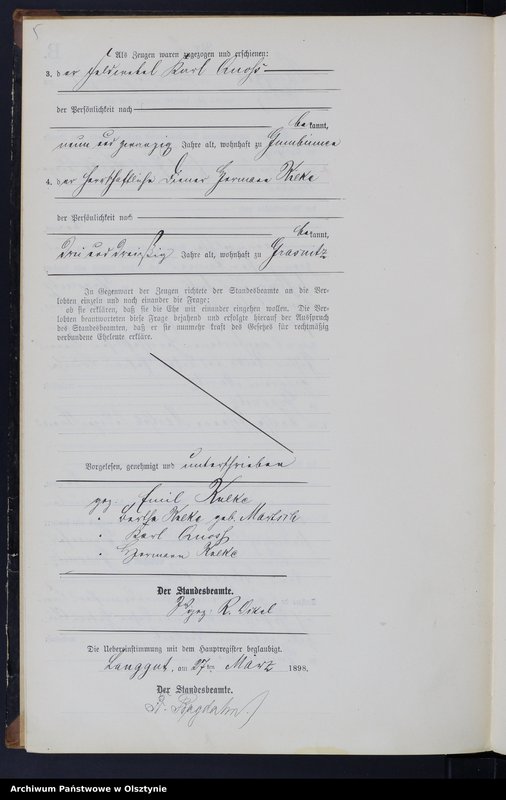 Als Zeugen waren zugezogen und erschienen:
3. der Feldwebel Karl
der Persönlichkeit nach
bekannt,
neun und zwanzig Jahre alt, wohnhaft zu Gumbinnen
4. der herrschaftliche Diener Hermann Kulke
der Persönlichkeit nach
bekannt,
drei und dreißig Jahre alt, wohnhaft zu Grasnitz
In Gegenwart der Zeugen richtete der Standesbeamte an die Ver-
lobten einzeln und nach einander die Frage:
ob sie erklären, daß sie die Ehe mit einander eingehen wollen. Die Ver-
lobten beantworteten diese Frage bejahend und erfolgte hierauf der Ausspruch
des Standesbeamten, daß er sie nunmehr kraft des Gesetzes für rechtmäßig
verbundene Eheleute erkläre.
Vorgelesen, genehmigt und unterschrieben
gez. Emil Kulke
" Bertha Kulke geb.
" Karl
" Hermann Kulke
Der Standesbeamte.
gez: R.
Die Uebereinstimmung mit dem Hauptregister beglaubigt.
Langgut, am 27ten März 1898.
Der Standesbeamte.
Bagdahn
Archiwum Państwowe w Olsztynie